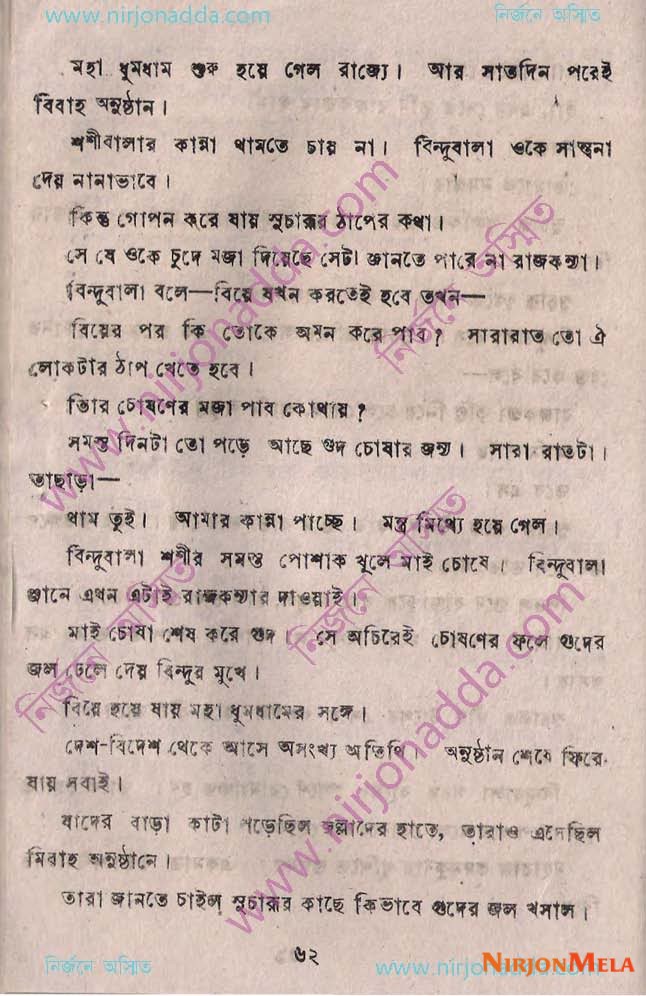 www.nirjonadda.com নির্জনে অস্মিত
মহা ধুমধাম শুরু হয়ে গেল রাজ্যে। আর সাতদিন পরেই
বিবাহ অনুষ্ঠান।
শশীবালার কান্না থামতে চায় না। বিন্দুবালা ওকে সান্ত্বনা
দেয় নানাভাবে।
কিন্তু গোপন করে যায় সুচারুর ঠাপের কথা।
সে যে ওকে চুদে মজা দিয়েছে সেটা জানতে পারে না রাজকন্যা।
বিন্দুবালা বলে—বিয়ে যখন করতেই হবে তখন—
বিয়ের পর কি তোকে অমন করে পাব? সারারাত তো ঐ
লোকটার ঠাপ খেতে হবে।
তোর চোষণের মজা পাব কোথায়?
সমস্ত দিনটা তো পড়ে আছে গুদ চোষার জন্য। সারা রাতটা।
তাছাড়া—
থাম তুই। আমার কান্না পাচ্ছে। মন্ত্র মিথ্যে হয়ে গেল।
বিন্দুবালা শশীর সমস্ত পোশাক খুলে মাই চোষে। বিন্দুবালা
জানে এখন এটাই রাজকন্যার দাওয়াই।
মাই চোষা শেষ করে গুদ। সে অচিরেই চোষণের ফলে গুদের
জল ঢেলে দেয় বিন্দুর মুখে।
বিয়ে হয়ে যায় মহা ধুমধামের সঙ্গে।
দেশ-বিদেশ থেকে আসে অসংখ্য অতিথি। অনুষ্ঠান শেষে ফিরে
যায় সবাই।
যাদের বাড়া কাটা পড়েছিল জল্লাদের হাতে, তারাও এসেছিল
বিবাহ অনুষ্ঠানে।
তারা জানতে চাইল সুচারুর কাছে কিভাবে গুদের জল খসাল।
৬২
নির্জনে অস্মিত www.nirjonadda.com
NIRJONMELA
www.nirjonadda.com
নির্জনে অস্মিত
নির্জনে অস্মিত
নির্জনে অস্মিত
www.nirjonadda.com